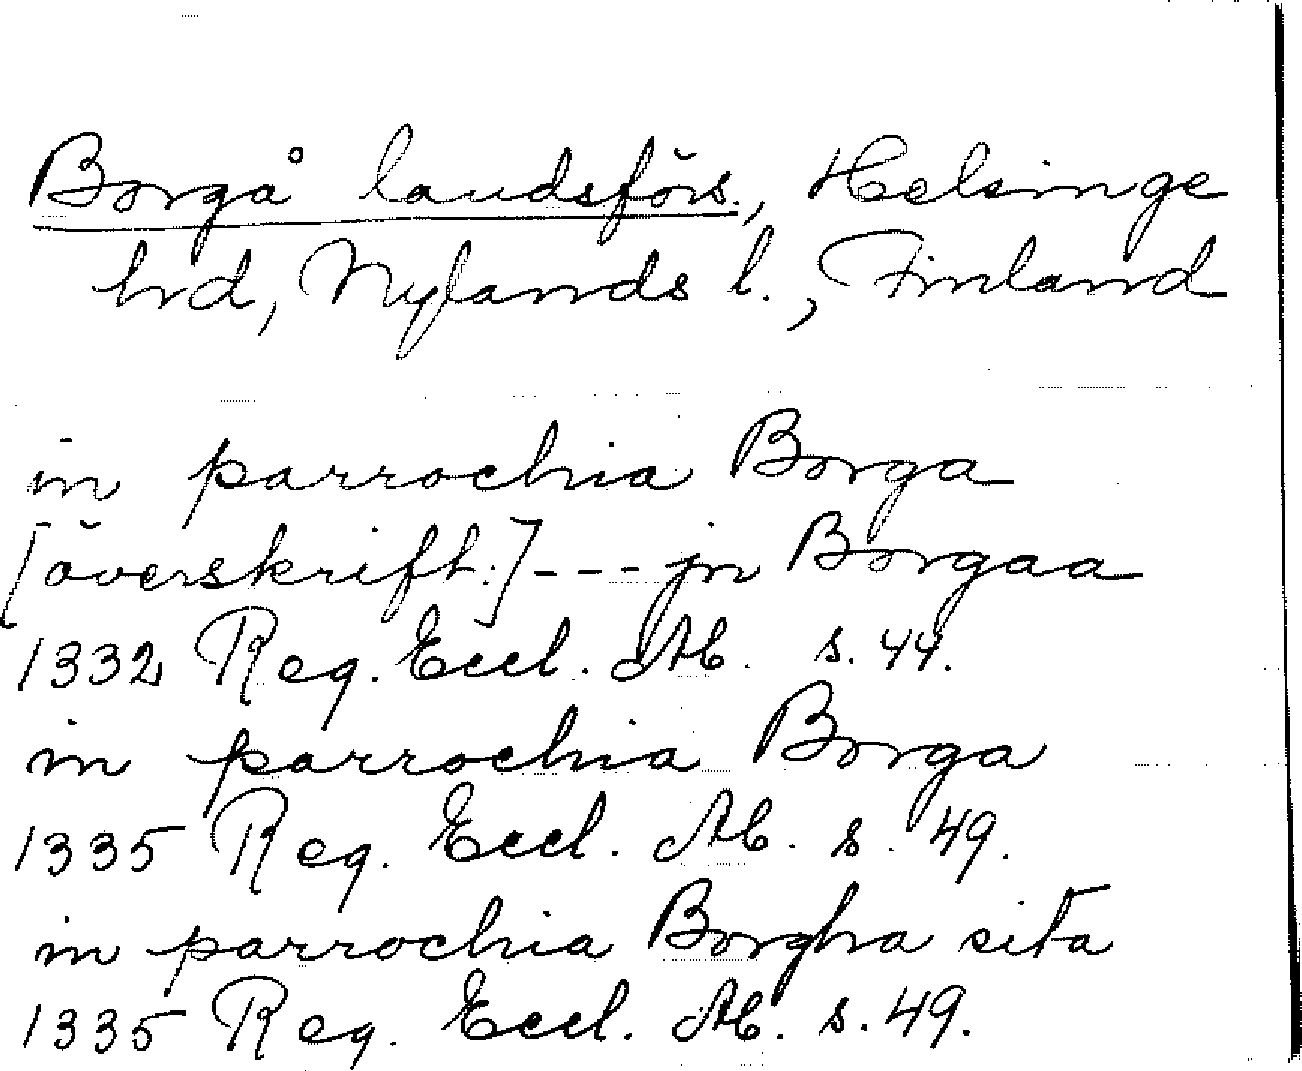 Borgå landsförs., Helsinge
hd, Nylands l., Finland
in parrochia Borga
[överskift.] --- jn Borgaa
1332 Reg. Eccl. Ab. s. 44.
in parrochia Borga
1335 Reg. Eccl. Ab. s. 49.
in parrochia Borgha sita
1335 Reg. Eccl. Ab. s. 49.